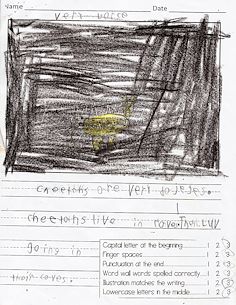 Name Date
very
cheetahs are very
cheetahs live in
going in
their caves.
Capital letter at the beginning 1 2 3
Finger spaces 1 2 3
Punctuation at the end 1 2 3
Word wall words spelled correctly 1 2 3
Illustration matches the writing 1 2 3
Lowercase letters in the middle 1 2 3